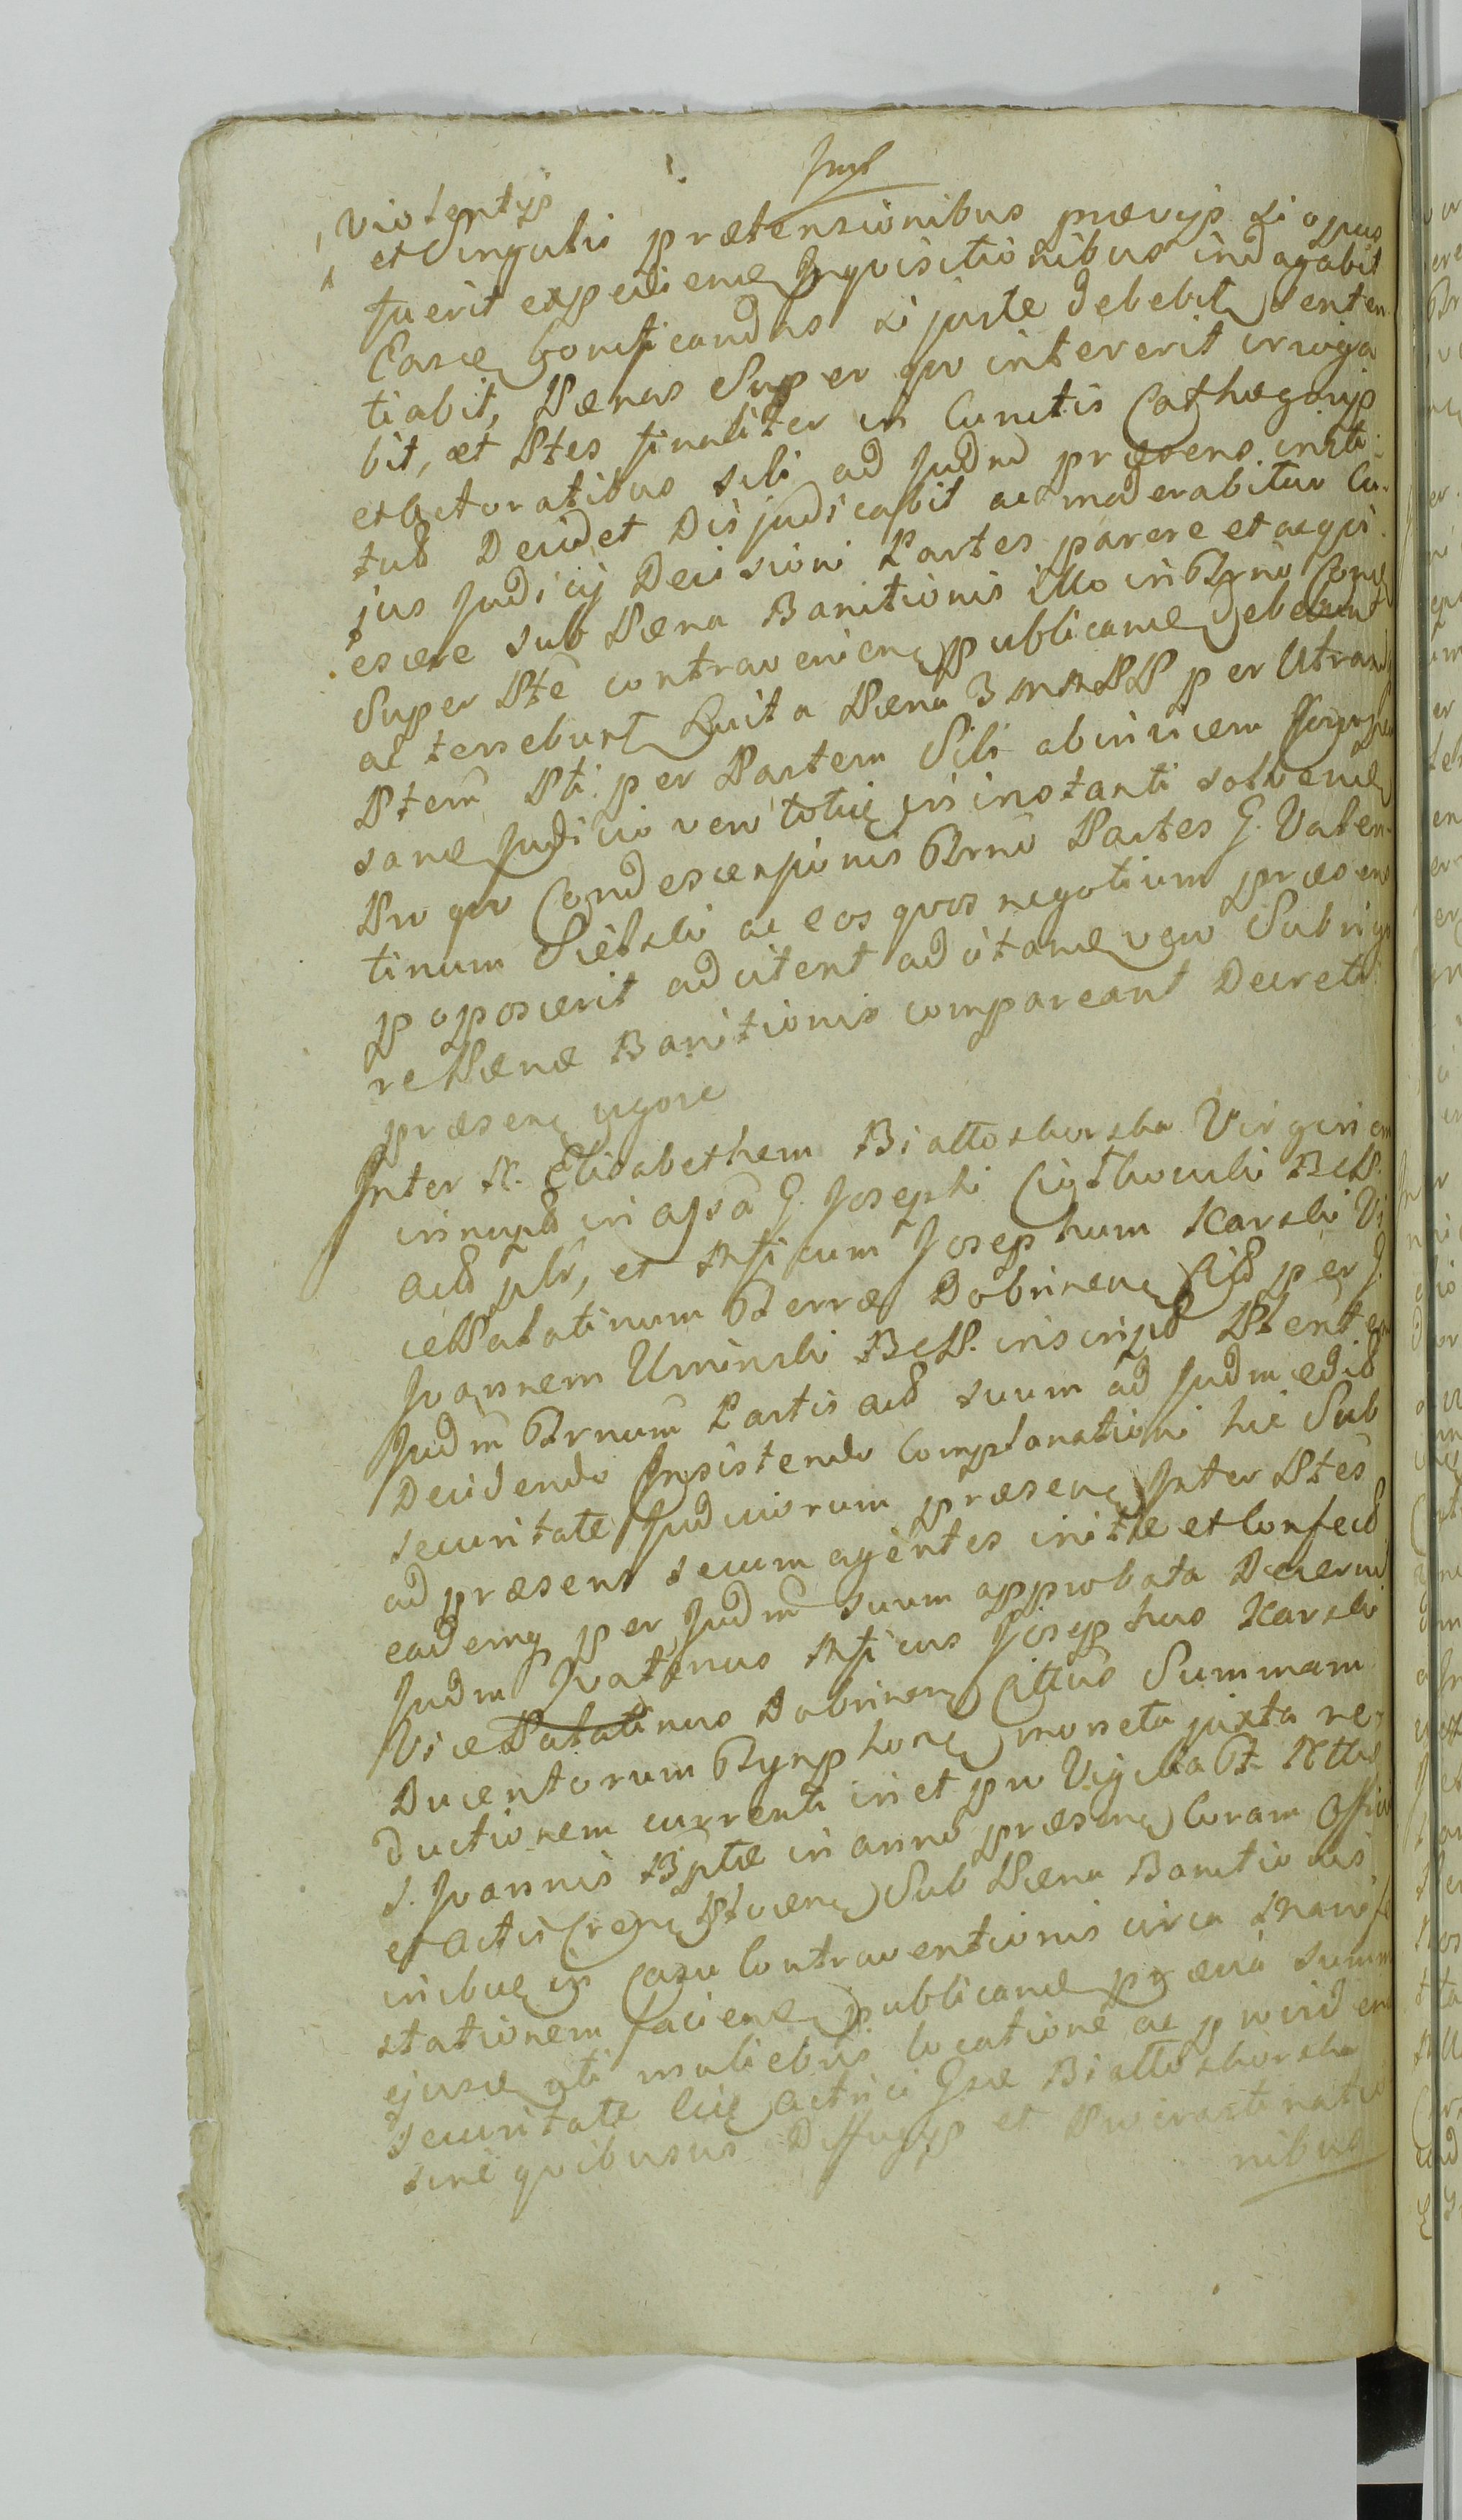 violentijs
et Singulis prætensionibus prævijs si opus
fuerit expediend Inquisitionibus indagabit
Easq bonificandas si juste debebit senten
tiabit, Pænas Super quo intererit irroga
bit, et Ptes finaliter in Cunctis Cathegorijs
et actoratibus sibi ad Judm præsens insti
tut Decidet Disjudicabit ac moderabitur Cu-
jus Judicij Decisioni Partes parere et acqui
escere sub Pæna Banitionis illo in Trno Cond
Super Pte contravenien publicand debebunt
ac tenebunt Luita Pæna 3 MMPP per Utramq
Ptem Pti per Partem Sibi abinvicem
sand Judicio vero totie in instanti solvend
Pro quo Condescensionis Trno Partes G. Valen
tinum Sielski ac eos quos negotium præsens
poposcerit adcitent adcitandq vero Sub rigo
re Pænæ Banitionis compareant Decreti
præsen vigore
Inter N. Elisabetham Białłoskorska Virginem
innupt in assa G. Josephi
act plr, et Mficum Josephum Karski Vi
cePalatinum Terræ Dobrinen Cit per G.
Joannem Uminski inscript Ptentem
Judm Trnum Partis act suum ad Judm edit
Decidendo Insistendo Complanationi hic Sub
securitate Judiciorum præsen Inter Ptes
ad præsens secum agentes initæ et Confect
eademq per Judm suum approbata Decernit
Judm Quatenus Mficus Josephus Karski
VicePalatinus Dobrinen Cittus Summam
Ducentorum Tynphon moneta juxta re-
ductionem currenti in et pro Vigilia
S. Joannis Bptæ in anno præsen Coram Officio
et Actis Sub Pæna Banitionis
in Casu Contraventionis circa Manife
stationem faciend publicand prævia summ
ejusq uti muliebris locatione ac provid
securitate Actrici Gsæ Białłoskorska
sine quibusvis Diffugijs et Procrastinatio
nibus